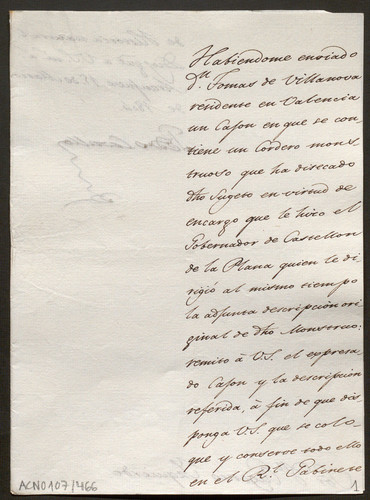 Habiendome enviado
Dn. Tomas de Villanova
residente en Valencia
un Cajon en que se con
tiene un Cordero mons
truoso que ha disecado
dho Sugeto en virtud de
encargo que le hizo el
Gobernador de Castellon
de la Plana quien le di
rigió al mismo tiempo
la adjunta descripción ori
ginal de dho Monstruo:
remito à V.S. el expresa
do Cajon y la descripcion
referida, à fin de que dis
ponga V.S. que se colo
que y conserve todo ello
en el Rl. Gabinete
ACN0107/466
1